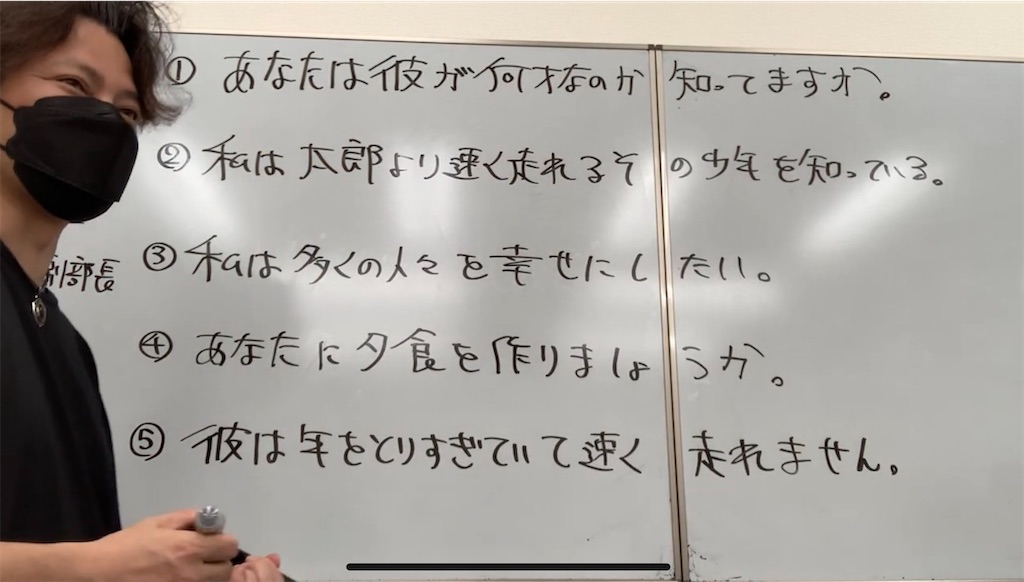 ① あなたは彼が何才なのか知ってますか。
② 私は太郎より速く走れるその少年を知っている。
③ 私は多くの人々を幸せにしたい。
副部長
④ あなたに夕食を作りましょうか。
⑤ 彼は年をとりすぎていて速く走れません。